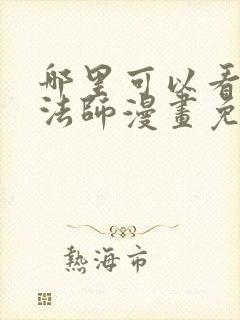 哪里可以看
法師漫畫免
熱海市